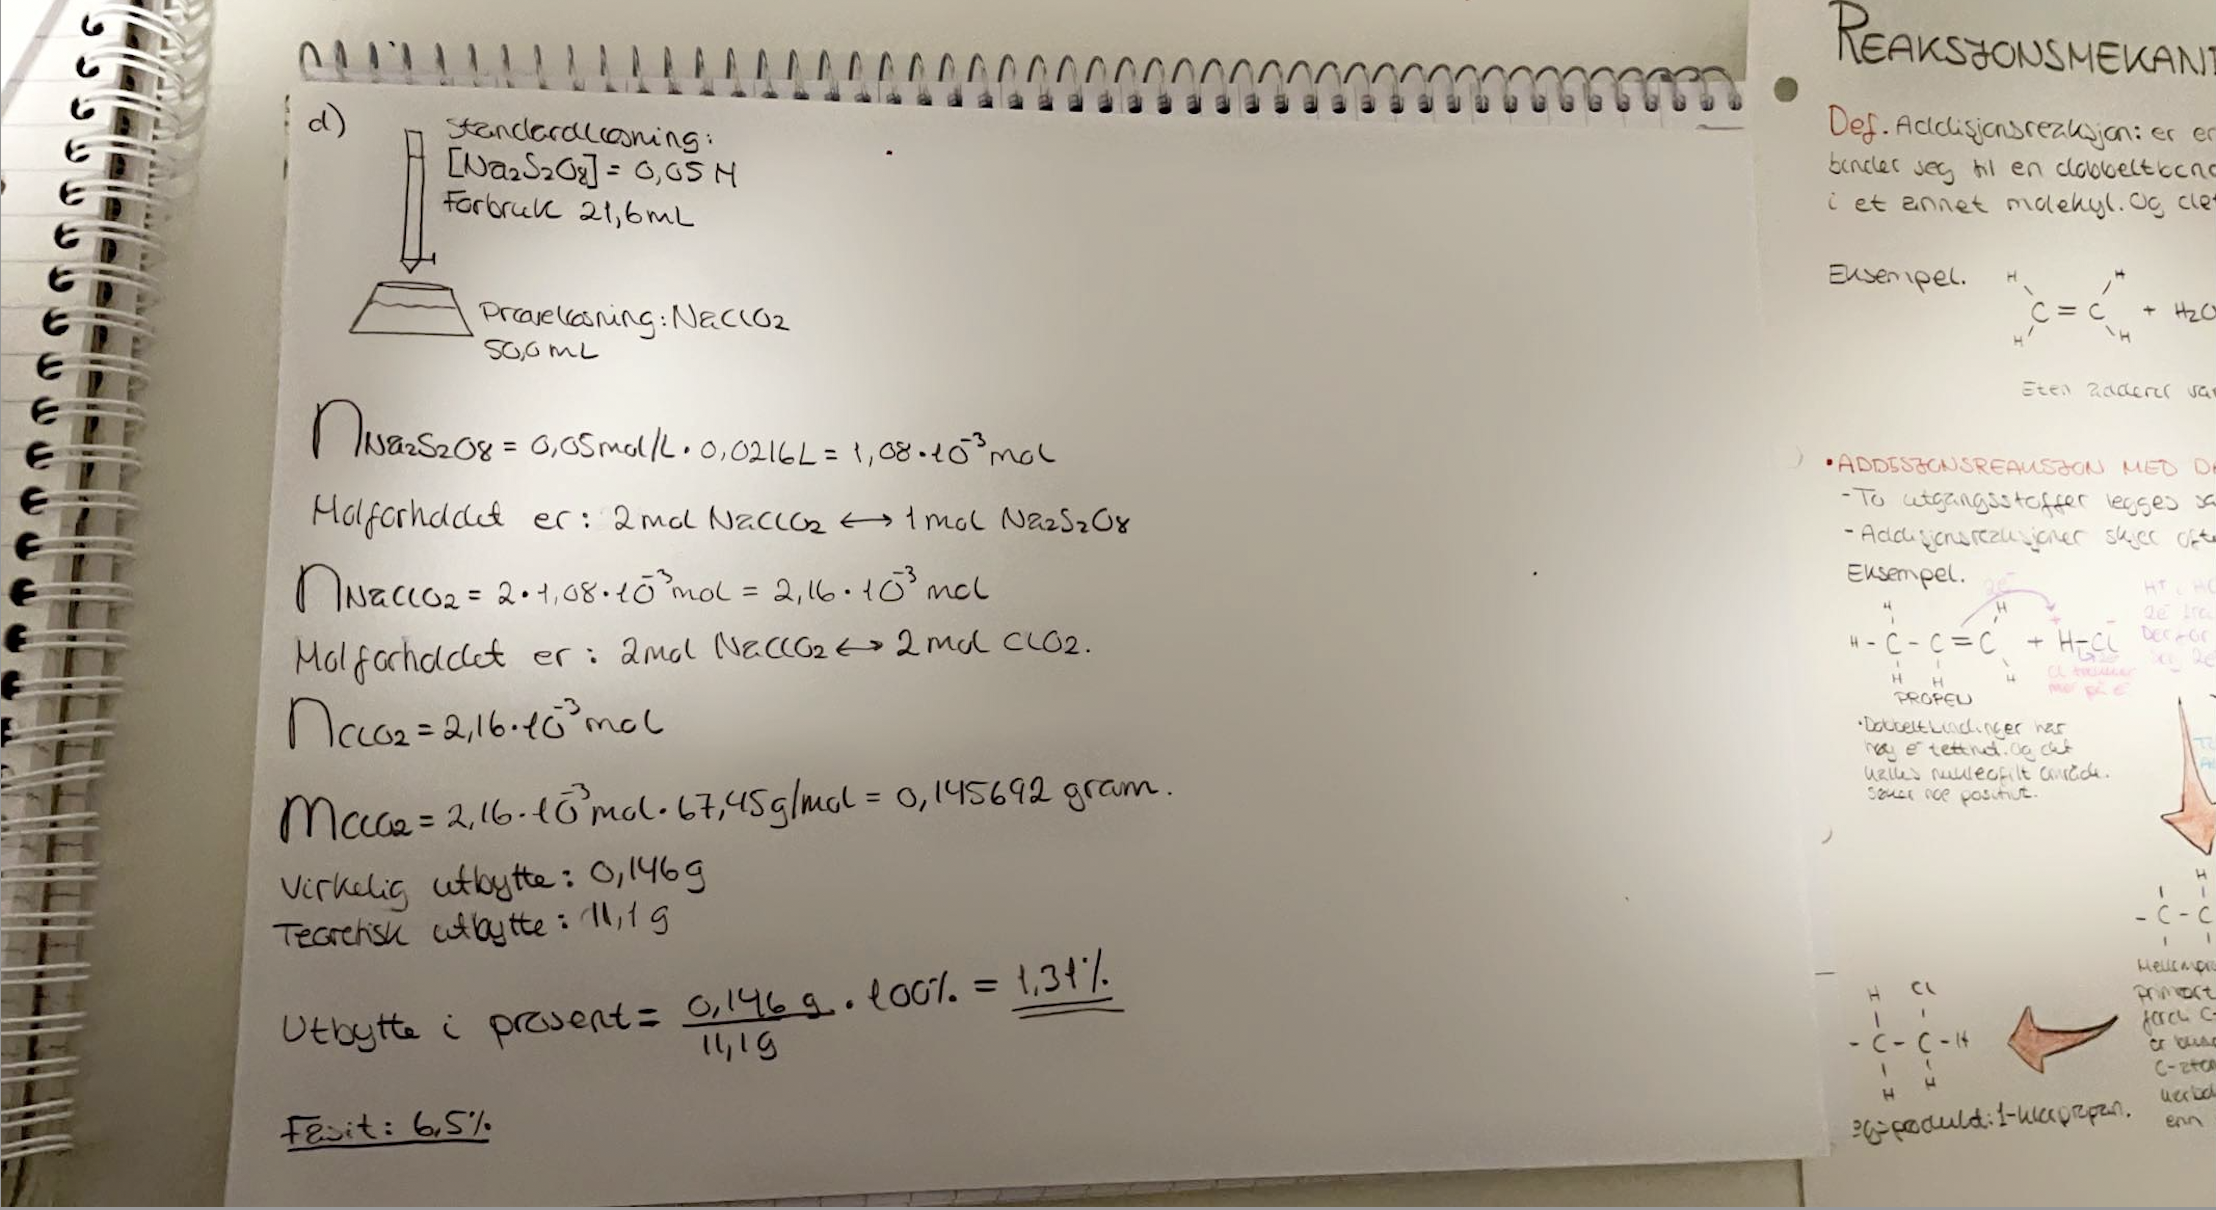 d)
Standardløsning:
[Na2S2O8] = 0,05 M
Forbruk 21,6 mL
Prøveløsning: NaClO2
50,0 mL
nNa2S2O8 = 0,05 mol/L · 0,0216 L = 1,08 · 10⁻³ mol
Molforholdet er : 2 mol NaClO2 ↔ 1 mol Na2S2O8
nNaClO2 = 2 · 1,08 · 10⁻³ mol = 2,16 · 10⁻³ mol
Molforholdet er : 2 mol NaClO2 ↔ 2 mol ClO2.
nClO2 = 2,16 · 10⁻³ mol
mClO2 = 2,16 · 10⁻³ mol · 67,45 g/mol = 0,145692 gram.
Virkelig utbytte : 0,146 g
Teoretisk utbytte : 11,1 g
Utbytte i prosent = 0,146 g / 11,1 g · 100% = 1,31%
Fasit : 6,5%
REAKSJONSMEKANI
Def. Addisjonsreaksjon: er en
binder seg til en dobbeltbind
i et annet molekyl. Og det
Eksempel.
H H
C = C + H2O
H H
Eten adderer
• ADDISJONSREAKSJON MED
- To utgangsstoffer legges
- Addisjonsreaksjoner skjer ofte
Eksempel.
2e⁻
H H
H - C - C = C + H-Cl
H H H
PROPEN
• Dobbeltbindinger har
høy e⁻ tetthet. Og det
kalles nukleofilt område.
Søker noe positivt.
H
- C - C
H Cl
- C - C - H
H H
produkt: 1-klorpropan.